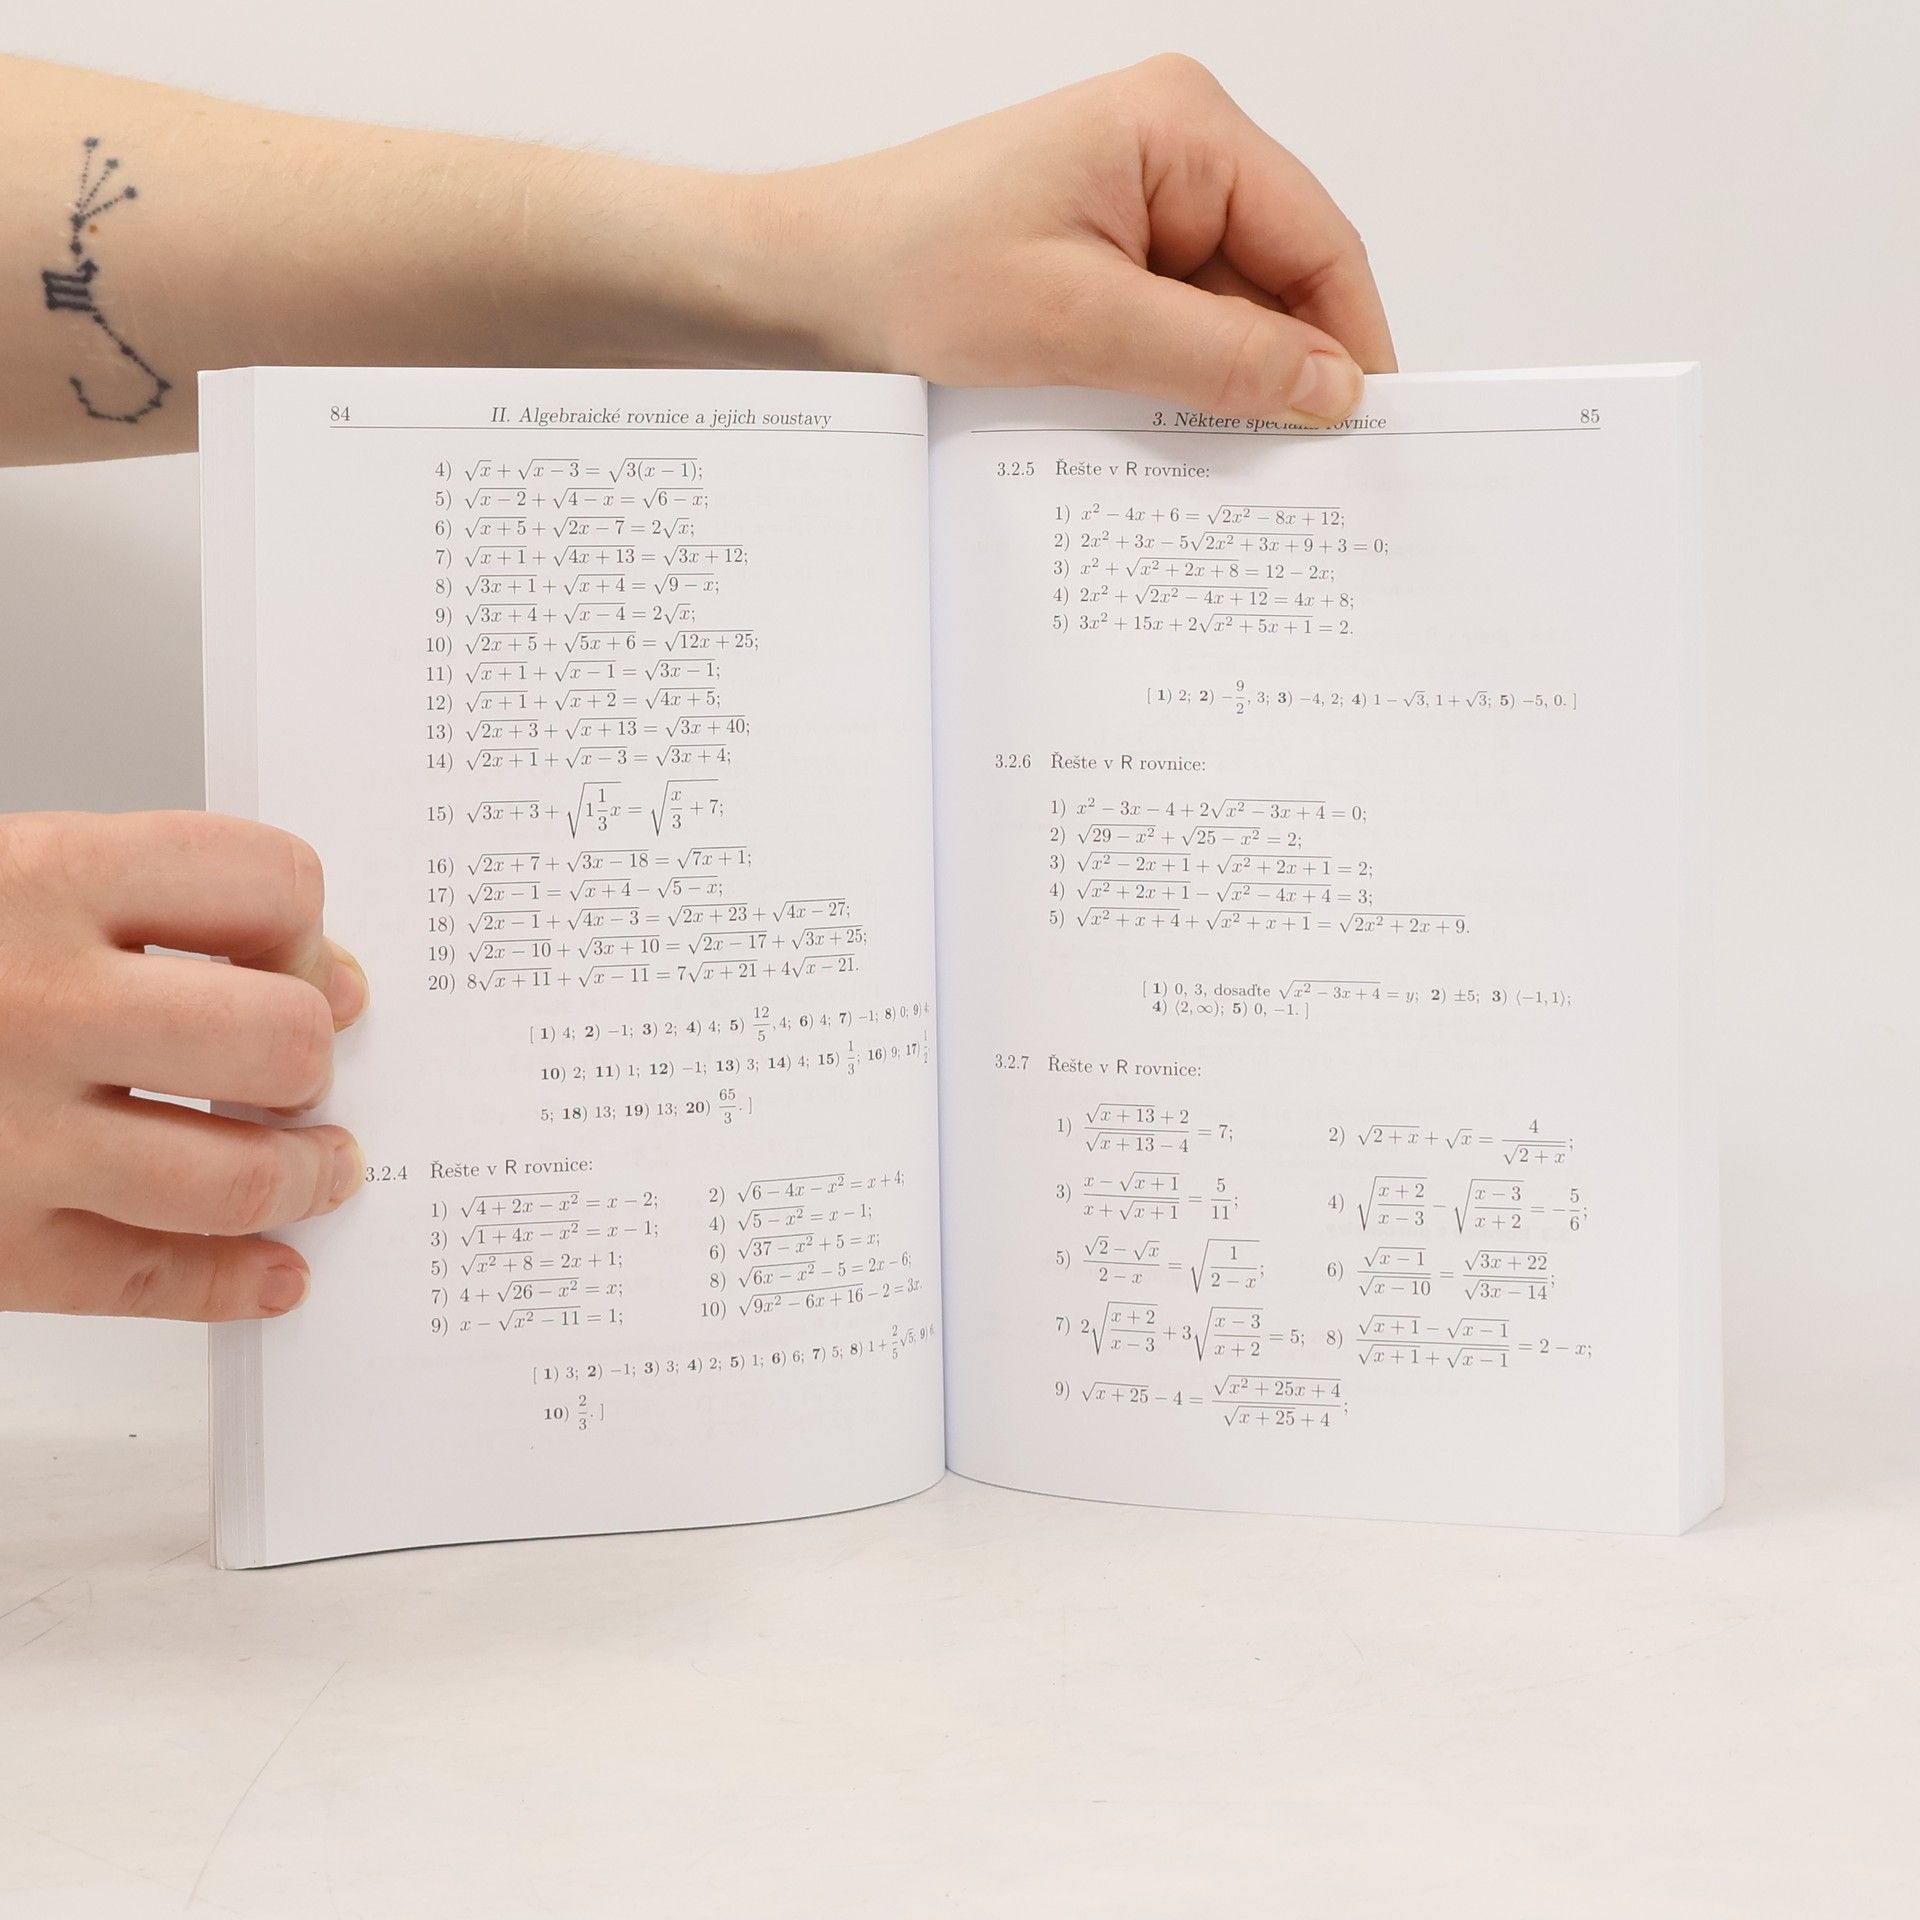 84 II. Algebraické rovnice a jejich soustavy
4) √x + √(x − 3) = √(3(x − 1));
5) √(x − 2) + √(4 − x) = √(6 − x);
6) √(x + 5) + √(2x − 7) = 2√x;
7) √(x + 1) + √(4x + 13) = √(3x + 12);
8) √(3x + 1) + √(x + 4) = √(9 − x);
9) √(3x + 4) + √(x − 4) = 2√x;
10) √(2x + 5) + √(5x + 6) = √(12x + 25);
11) √(x + 1) + √(x − 1) = √(3x − 1);
12) √(x + 1) + √(x + 2) = √(4x + 5);
13) √(2x + 3) + √(x + 13) = √(3x + 40);
14) √(2x + 1) + √(x − 3) = √(3x + 4);
15) √(3x + 3) + √(1 1/3 x) = √(x/3 + 7);
16) √(2x + 7) + √(3x − 18) = √(7x + 1);
17) √(2x − 1) = √(x + 4) − √(5 − x);
18) √(2x − 1) + √(4x − 3) = √(2x + 23) + √(4x − 27);
19) √(2x − 10) + √(3x + 10) = √(2x − 17) + √(3x + 25);
20) 8√(x + 11) + √(x − 11) = 7√(x + 21) + 4√(x − 21).
[ 1) 4; 2) −1; 3) 2; 4) 4; 5) 12/5, 4; 6) 4; 7) −1; 8) 0; 9)
10) 2; 11) 1; 12) −1; 13) 3; 14) 4; 15) 1/3; 16) 9; 17) 1/2,
5; 18) 13; 19) 13; 20) 65/3. ]
3.2.4 Řešte v R rovnice:
1) √(4 + 2x − x²) = x − 2; 2) √(6 − 4x − x²) = x + 4;
3) √(1 + 4x − x²) = x − 1; 4) √(5 − x²) = x − 1;
5) √(x² + 8) = 2x + 1; 6) √(37 − x²) + 5 = x;
7) 4 + √(26 − x²) = x; 8) √(6x − x²) − 5 = 2x − 6;
9) x − √(x² − 11) = 1; 10) √(9x² − 6x + 16) − 2 = 3x.
[ 1) 3; 2) −1; 3) 3; 4) 2; 5) 1; 6) 6; 7) 5; 8) 1 + 2/5 √5; 9) 6;
10) 2/3. ]
3. Některé rovnice 85
3.2.5 Řešte v R rovnice:
1) x² − 4x + 6 = √(2x² − 8x + 12);
2) 2x² + 3x − 5√(2x² + 3x + 9) + 3 = 0;
3) x² + √(x² + 2x + 8) = 12 − 2x;
4) 2x² + √(2x² − 4x + 12) = 4x + 8;
5) 3x² + 15x + 2√(x² + 5x + 1) = 2.
[ 1) 2; 2) −9/2, 3; 3) −4, 2; 4) 1 − √3, 1 + √3; 5) −5, 0. ]
3.2.6 Řešte v R rovnice:
1) x² − 3x − 4 + 2√(x² − 3x + 4) = 0;
2) √(29 − x²) + √(25 − x²) = 2;
3) √(x² − 2x + 1) + √(x² + 2x + 1) = 2;
4) √(x² + 2x + 1) − √(x² − 4x + 4) = 3;
5) √(x² + x + 4) + √(x² + x + 1) = √(2x² + 2x + 9).
[ 1) 0, 3, dosaďte √(x² − 3x + 4) = y; 2) ±5; 3) ⟨−1, 1⟩;
4) ⟨2, ∞); 5) 0, −1. ]
3.2.7 Řešte v R rovnice:
1) (√(x + 13) + 2)/(√(x + 13) − 4) = 7; 2) √(2 + x) + √x = 4/√(2 + x);
3) (x − √(x + 1))/(x + √(x + 1)) = 5/11; 4) √((x + 2)/(x − 3)) − √((x − 3)/(x + 2)) = −5/6;
5) (√2 − √x)/(2 − x) = √(1/(2 − x)); 6) √(x − 1)/√(x − 10) = √(3x + 22)/√(3x − 14);
7) 2√((x + 2)/(x − 3)) + 3√((x − 3)/(x + 2)) = 5; 8) (√(x + 1) − √(x − 1))/(√(x + 1) + √(x − 1)) = 2 − x;
9) √(x + 25) − 4 = √(x² + 25x + 4)/(√(x + 25) + 4);